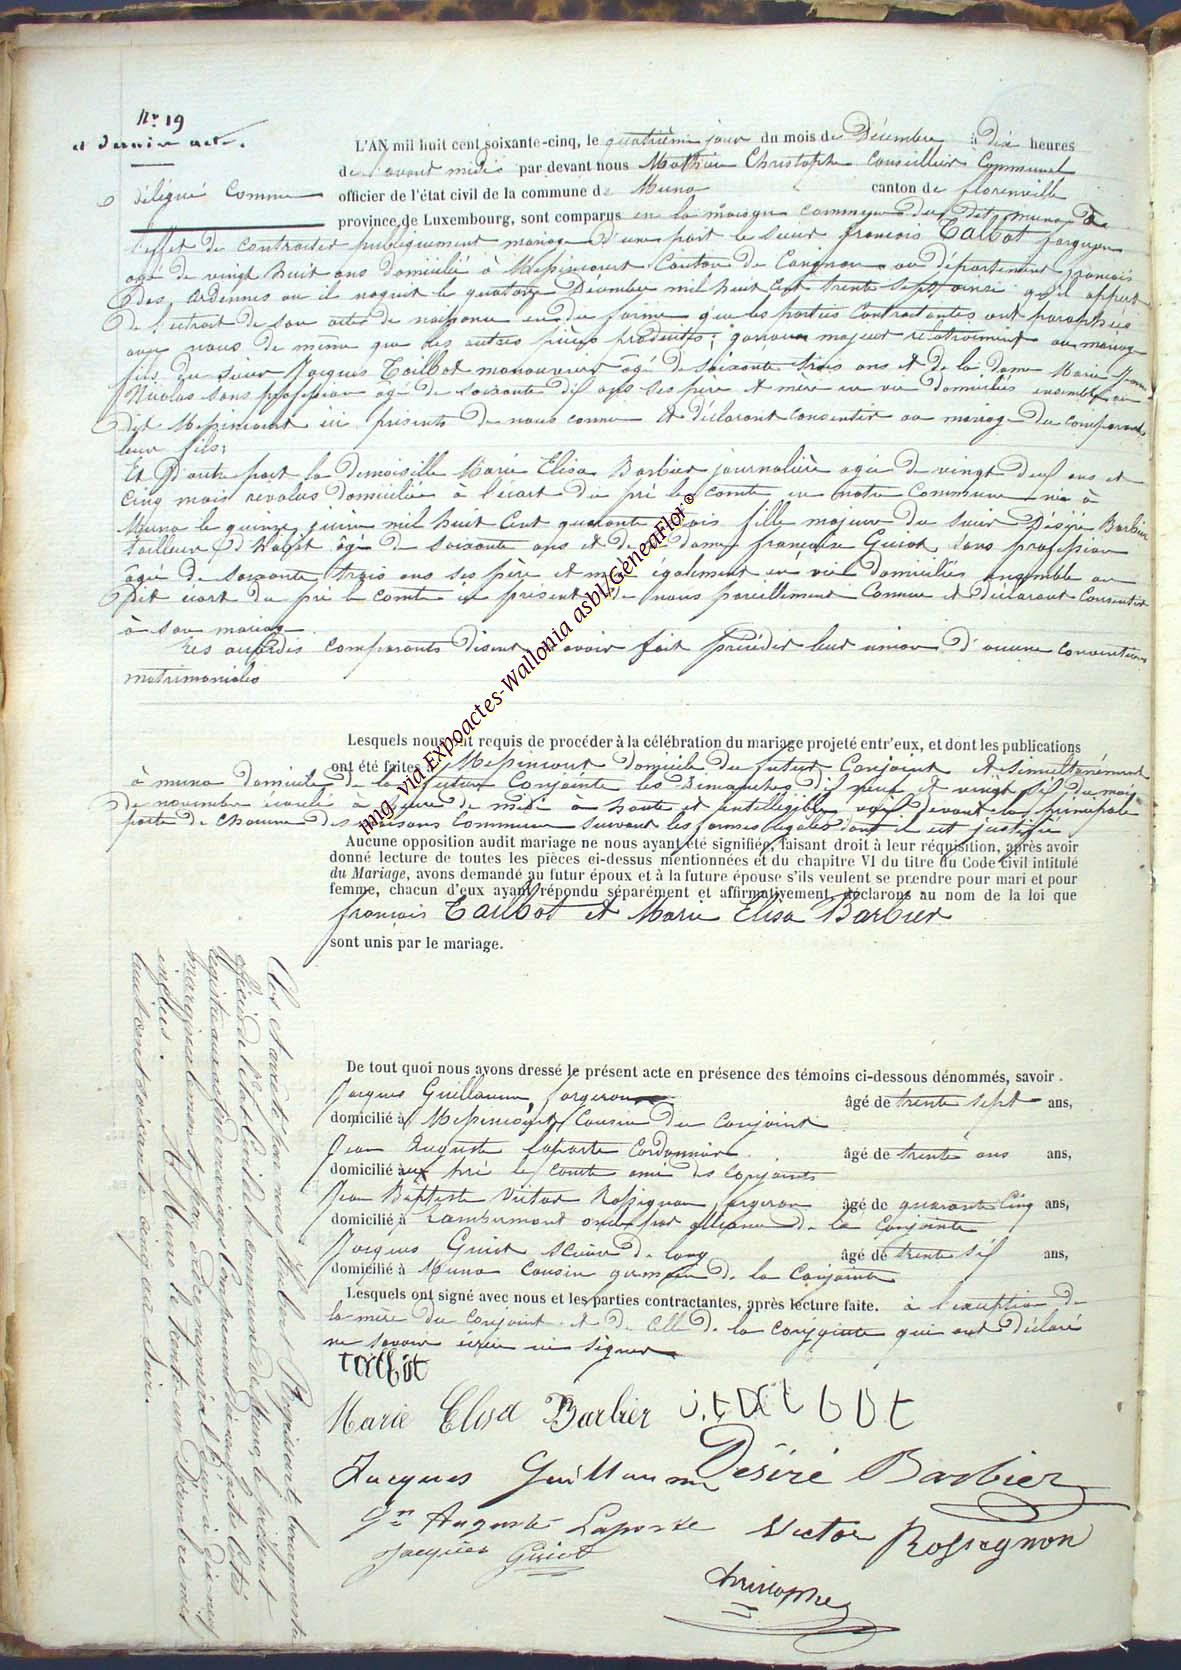 Nro 19
et dernier acte.
L'AN mil huit cent soixante-cinq, le quatrième jour du mois de Décembre à dix heures
de l'avant midi par devant nous Mathieu Christophe Conseiller Communal
délégué Comme officier de l'état civil de la commune de Muno canton de florenville
province de Luxembourg, sont comparus en la maison commune du dit muno à
l'effet de contracter publiquement mariage d'une part le sieur françois Tailbot forgeron
age de vingt huit ans domicilié à Messincourt Canton de Carignan au département français
des Ardennes ou il naquit le quatorze Décembre mil huit cent trente sept ainsi qu'il appert
de l'extrait de son acte de naissance en due forme que les parties Contractantes ont paraphées
avec nous de même que les autres pièces produites; garçon majeur relativement au mariage
fils du sieur Jacques Tailbot manouvrier âgé de soixante trois ans et de la dame Marie Jeanne
Nicolas sans profession âgée de soixante dix ans ses père et mère en vie domiciliés ensemble au
dit Messincourt ici présents de nous connus et déclarant consentir au mariage du comparant
leur fils;
Et d'autre part la demoiselle Marie Elisa Barbier journalière agée de vingt deux ans et
cinq mois revolus domiciliée à l'écart du pré le comte en notre Commune née à
Muno le quinze juin mil huit Cent quarante trois fille majeure du sieur Désiré Barbier
tailleur d'habit âgé de soixante ans et de la dame françoise Guiot sans profession
âgée de soixante trois ans ses père et mère également en vie domiciliés ensemble au
dit écart du pré le comte ici présents de nous pareillement Connus et déclarant Consentir
à son mariage
Les ausdis comparants disent avoir fait précéder leur union d'aucune conventions
matrimoniales
Lesquels nous ont requis de procéder à la célébration du mariage projeté entr'eux, et dont les publications
ont été faites à Messincourt domicile du futur Conjoint et simultanément
à muno domicile de la future Conjointe les Dimanches dix neuf et vingt six du mois
de novembre écoulé à heure de midi à haute et intelligible voix devant la principale
porte de chacune des maisons Commune suivant les formes légales dont il est justifié
Aucune opposition audit mariage ne nous ayant été signifiée, faisant droit à leur réquisition, après avoir
donné lecture de toutes les pièces ci-dessus mentionnées et du chapitre VI du titre du Code civil intitulé
du Mariage, avons demandé au futur époux et à la future épouse s'ils veulent se prendre pour mari et pour
femme, chacun d'eux ayant répondu séparément et affirmativement, déclarons au nom de la loi que
françois Tailbot et Marie Elisa Barbier
sont unis par le mariage.
De tout quoi nous avons dressé le présent acte en présence des témoins ci-dessous dénommés, savoir.
Jacques Guillaume, forgeron âgé de trente sept ans,
domicilié à Messincourt Cousin du conjoint
Jean Auguste Laporte Cordonnier âgé de trente ans ans,
domicilié aux pré le Comte ami des conjoints
Jean Baptiste Victor Rossignon, forgeron âgé de quarante cinq ans,
domicilié à Lambermont oncle par alliance de la Conjointe
Jacques Guiot scieur de long âgé de trente six ans,
domicilié à Muno Cousin germain de la Conjointe
Lesquels ont signé avec nous et les parties contractantes, après lecture faite. à l'exception de
la mère du conjoint et de celle de la conjointe qui ont déclaré
ne savoir écrire ni signer
tailbot
Marie Elisa Barbier j. tailbot
Jacques Guillaume Désiré Barbier
Jn Auguste Laporte Victor Rossignon
Jacques Guiot
Christophe
Clos et arrêté par nous Hubert Bourgmestre
officier de l'état Civil de la commune de Muno, le présent
registre aux actes de mariages Comprenant dix neuf actes Cotés
marginalement par ordre numéral d'un à dix neuf
inclus. A Muno le trente un Décembre mil
huit cent soixante cinq au soir.
img via Expoactes-Wallonia asbl/GeneaFlor©